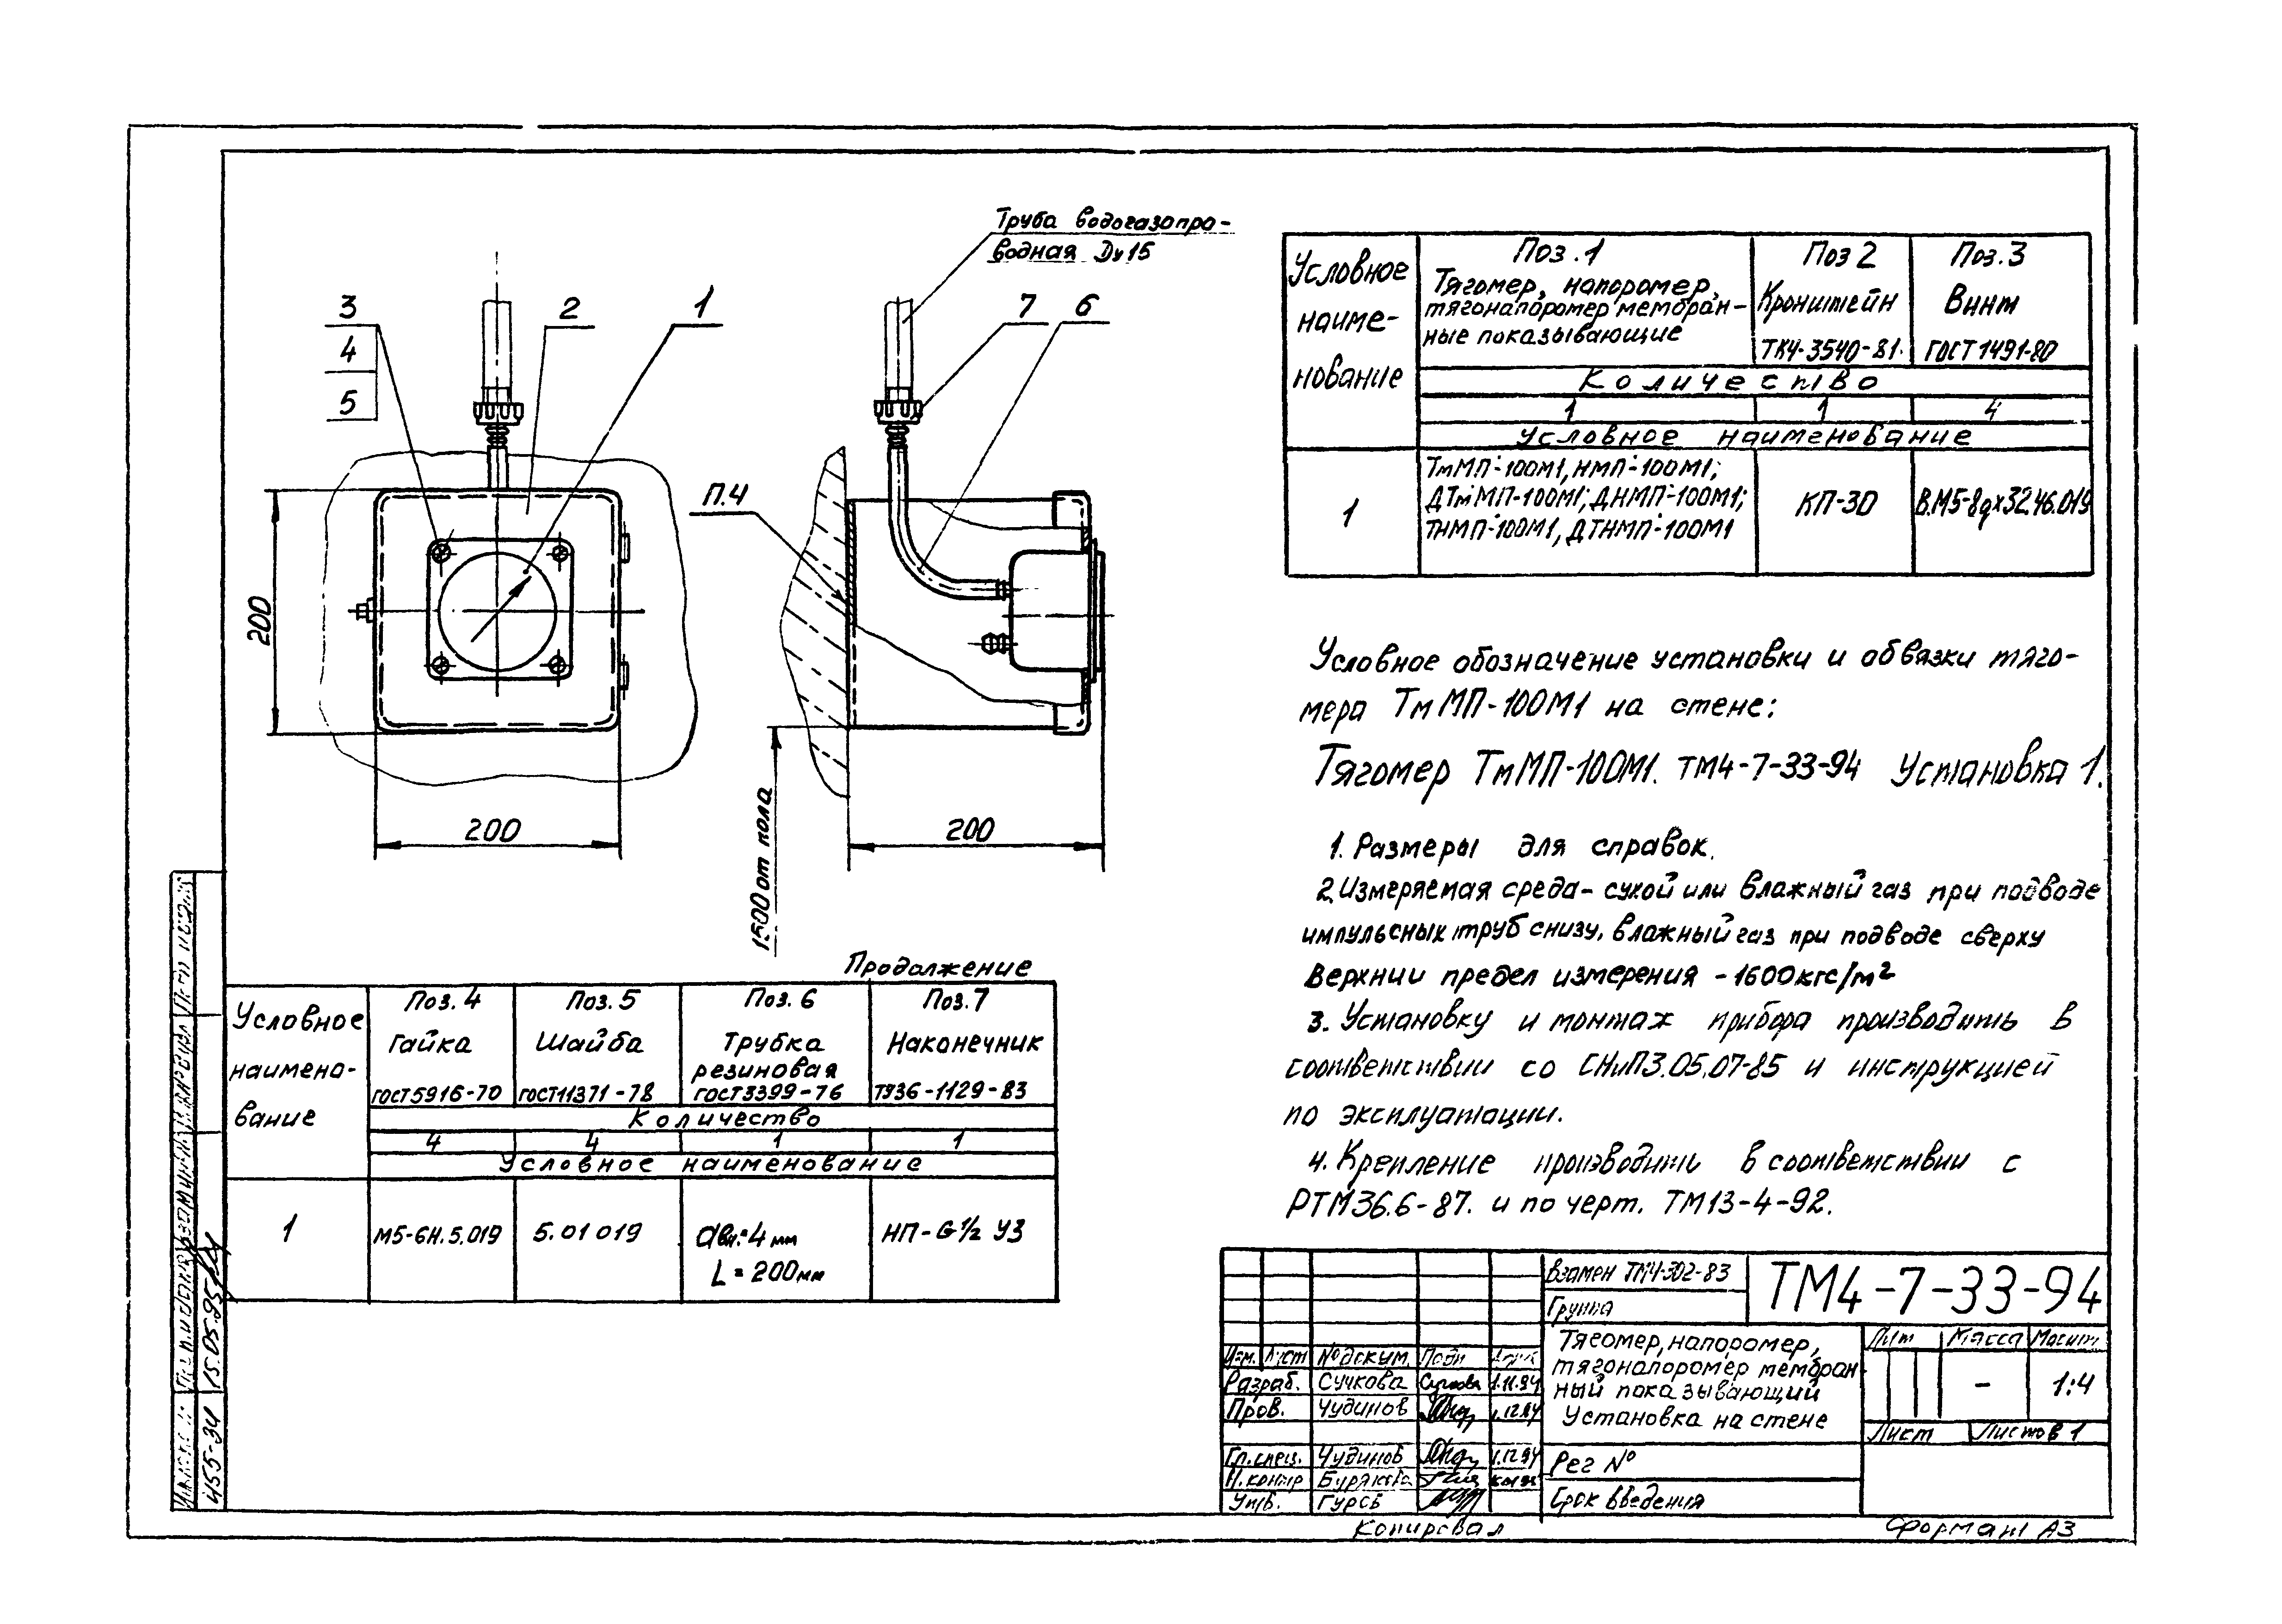 Труба водогазопро-
водная Dу15
3
4
5
2
1
7
6
П.4
200
200
200
1500 от пола
Условное
наиме-
нование
Поз.1
Тягомер, напоромер,
тягонапоромер мембран-
ные показывающие
Поз 2
Кронштейн
ТК4-3540-81.
Поз.3
Винт
ГОСТ1491-80
Количество
1 1 4
Условное наименование
1
ТмМП-100М1, НМП-100М1;
ДТмМП-100М1; ДНМП-100М1;
ТНМП-100М1, ДТНМП-100М1
КП-30
В.М5-8gх32.46.019
Условное обозначение установки и обвязки тяго-
мера ТмМП-100М1 на стене:
Тягомер ТмМП-100М1. ТМ4-7-33-94 Установка 1.
1. Размеры для справок.
2. Измеряемая среда- сухой или влажный газ при подводе
импульсных труб снизу, влажный газ при подводе сверху
Верхний предел измерения -1600кгс/м²
3. Установку и монтаж прибора производить в
соответствии со СНиП3.05.07-85 и инструкцией
по эксплуатации.
4. Крепление производить в соответствии с
РТМ36.6-87. и по черт. ТМ13-4-92.
Продолжение
Условное
наимено-
вание
Поз.4
Гайка
ГОСТ5916-70
Поз.5
Шайба
ГОСТ11371-78
Поз.6
Трубка
резиновая
ГОСТ3399-76
Поз.7
Наконечник
ТУ36-1129-83
Количество
4 4 1 1
Условное наименование
1
М5-6Н.5.019
5.01 019
dвн.=4мм
L=200мм
НП-G½ У3
Взамен ТМ4-302-83
Группа
ТМ4-7-33-94
Тягомер, напоромер,
тягонапоромер мембран-
ный показывающий
Установка на стене
Лит Масса Масшт
- 1:4
Лист Листов 1
Рег №
Срок введения
Изм. Лист №докум. Подп
Разраб. Сучкова Сучкова 1.11.94
Пров. Чудинов 1.12.94
Гл.спец. Чудинов 1.12.94
Н.контр
Утв. Гуров
Копировал
Формат А3
455-34
15.05.95